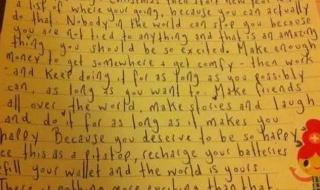 Christmas then start new year
a list of where your going, because you can actually
do that. Nobody in the world can stop you because
you are not tied to anything and that is an amazing
thing, you should be so excited. Make enough
money to get somewhere & get comfy - then work
and keep doing it for as long as you possibly
can, as long as you want to. Make friends
all over the world, make stories and laugh
and do it for as long as it makes you
happy. Because you deserve to be so happy
see this as a pitstop, recharge your batteries
fill your wallet and the world is yours.
There is nothing more exciting than that